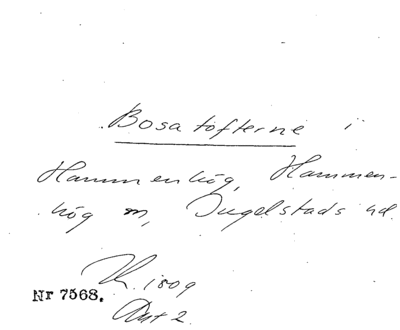 Bosatofterne i
Hammenhög, Hammen-
hög sn, Ingelstads hd.
1809
Nr 7568.
Akt 2.